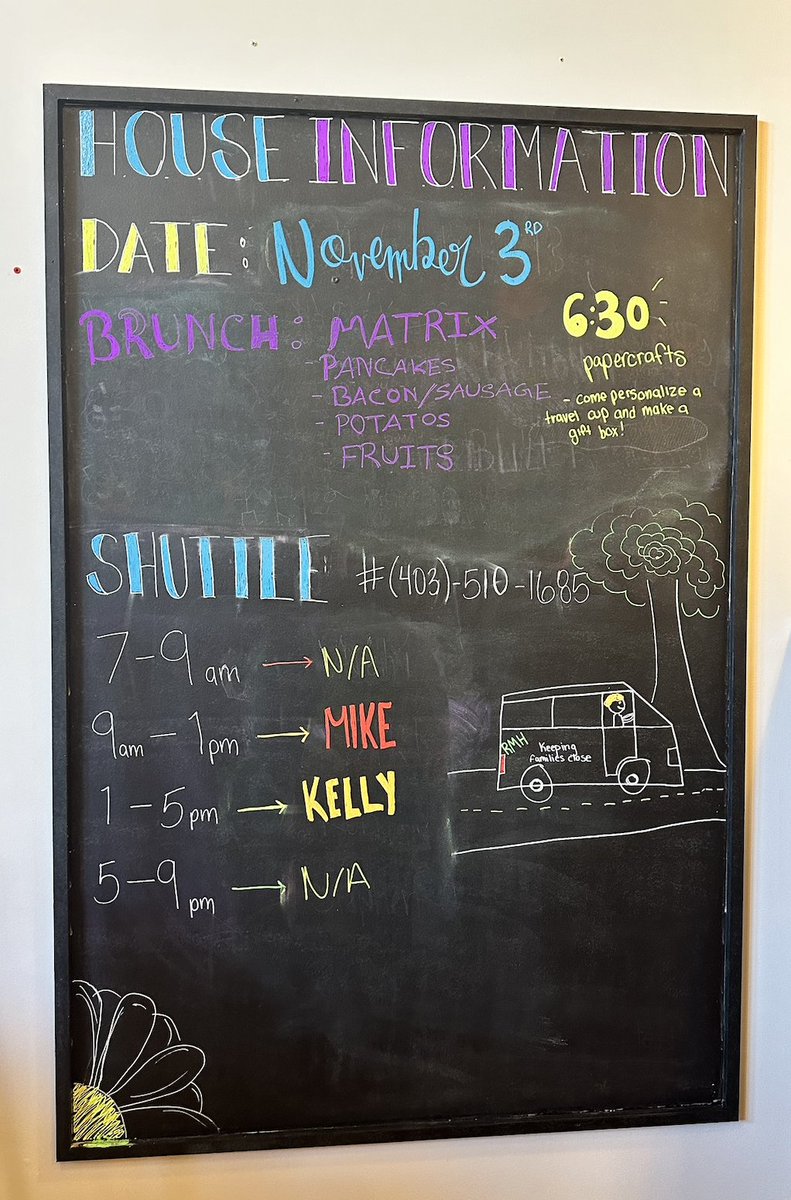 HOUSE INFORMATION
DATE: November 3RD
BRUNCH: MATRIX
- PANCAKES
- BACON/SAUSAGE
- POTATOS
- FRUITS
6:30
papercrafts
- come personalize a
travel cup and make a
gift box!
SHUTTLE: #(403)-510-1685
7-9 am → N/A
9am - 1pm → MIKE
1-5pm → KELLY
5-9pm → N/A
RMH
Keeping
families close